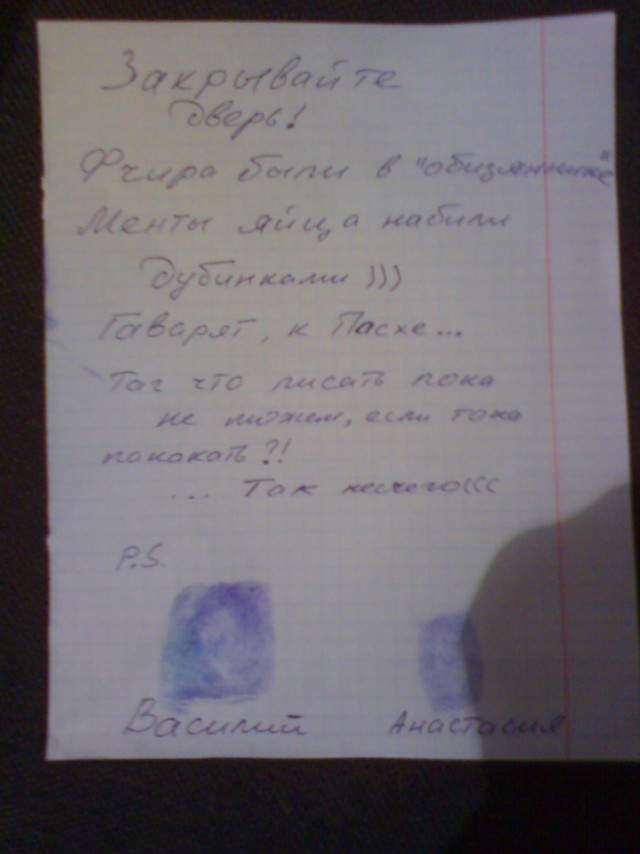 Закрывайте
дверь!
Фчира были в "обизяннике"
Менты яйца набили
дубинками )))
Гаварят, к Пасхе...
Таг что писать пока
не можим, если тока
пакакать?!
... Так нечего(((
P.S.
Василий Анастасия